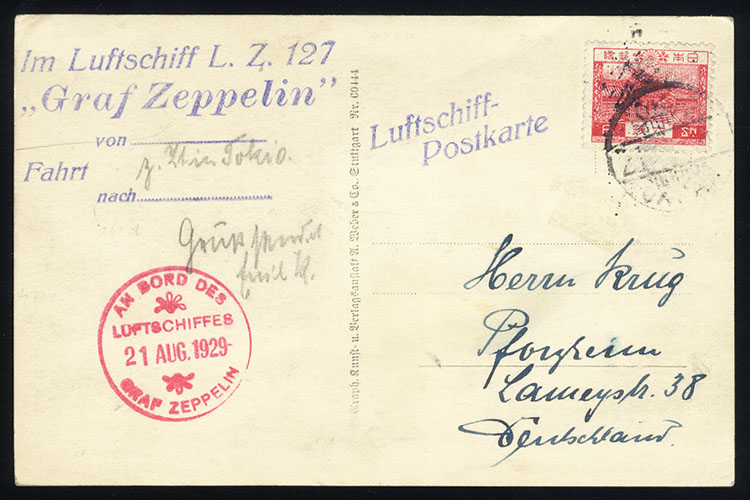 Im Luftschiff L. Z. 127
„Graf Zeppelin”
von
z. Zt in Tokio.
Fahrt
nach
Gruß sendet
Emil
AN BORD DES
LUFTSCHIFFES
21 AUG. 1929-
GRAF ZEPPELIN
Graph. Kunst- u. Verlagsanstalt A. Weber & Co. Stuttgart Nr. 60444
Luftschiff-
Postkarte
日本郵便
Herrn Krug
Pforzheim
Lameystr. 38
Deutschland.